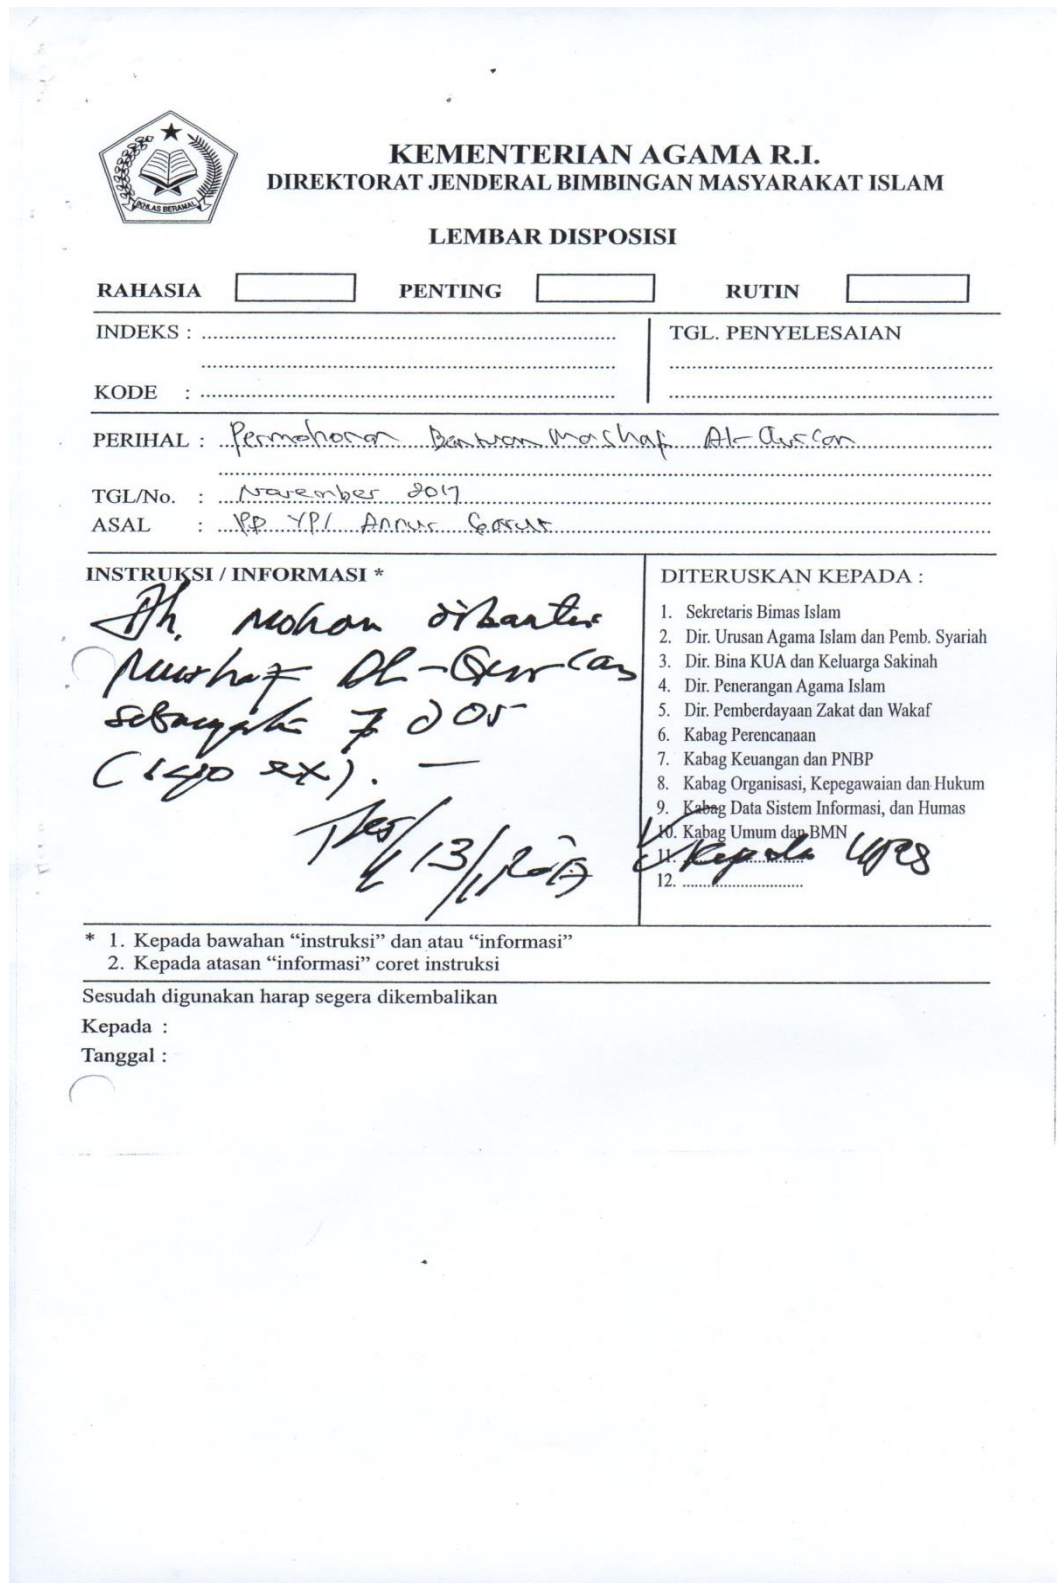 IKHLAS BERAMAL
KEMENTERIAN AGAMA R.I.
DIREKTORAT JENDERAL BIMBINGAN MASYARAKAT ISLAM
LEMBAR DISPOSISI
RAHASIA PENTING RUTIN
INDEKS : TGL. PENYELESAIAN
KODE :
PERIHAL : Permohonan Bantuan Mashaf Al-Qur'an
TGL/No. : November 2017
ASAL : PP YPI Annur Garut
INSTRUKSI / INFORMASI *
Mohon dibantu
Mushaf Al-Qur'an
sebanyak 7 dos
(140 ex). -
13/
DITERUSKAN KEPADA :
1. Sekretaris Bimas Islam
2. Dir. Urusan Agama Islam dan Pemb. Syariah
3. Dir. Bina KUA dan Keluarga Sakinah
4. Dir. Penerangan Agama Islam
5. Dir. Pemberdayaan Zakat dan Wakaf
6. Kabag Perencanaan
7. Kabag Keuangan dan PNBP
8. Kabag Organisasi, Kepegawaian dan Hukum
9. Kabag Data Sistem Informasi, dan Humas
10. Kabag Umum dan BMN
11. Kepala
12.
* 1. Kepada bawahan “instruksi” dan atau “informasi”
2. Kepada atasan “informasi” coret instruksi
Sesudah digunakan harap segera dikembalikan
Kepada :
Tanggal :